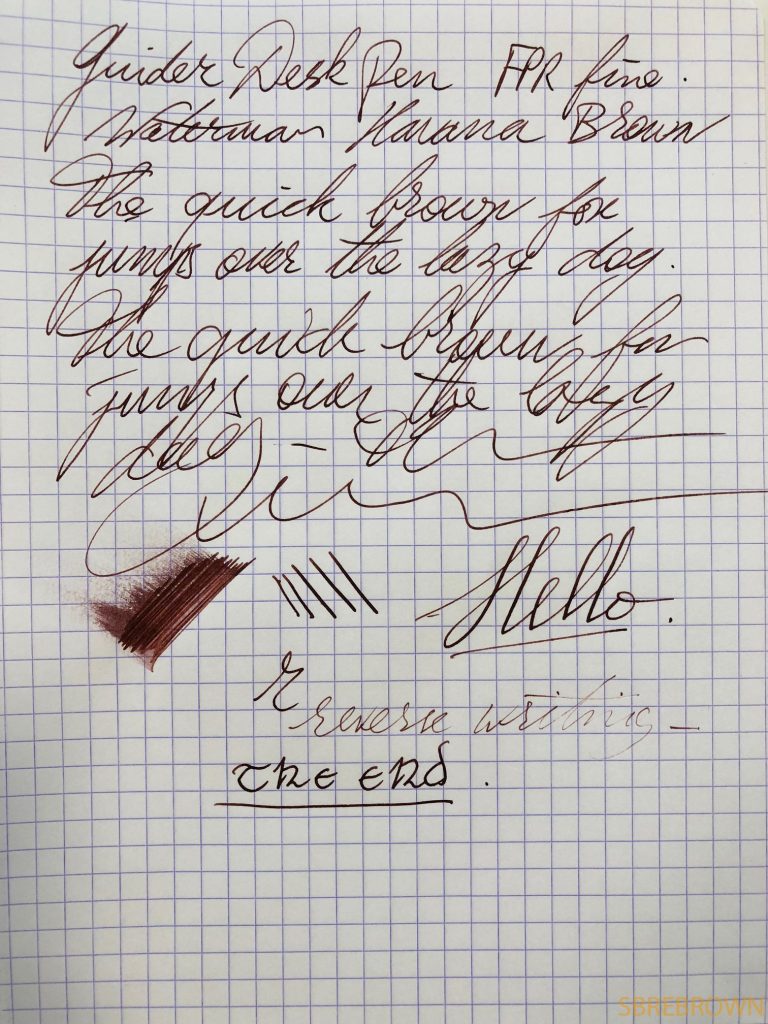 Guider Desk Pen FPR fine.
Waterman Havana Brown
The quick brown fox
jumps over the lazy dog.
The quick brown fox
jumps over the lazy
dog -
Hello.
r
reverse writing -
The End.
SBREBROWN